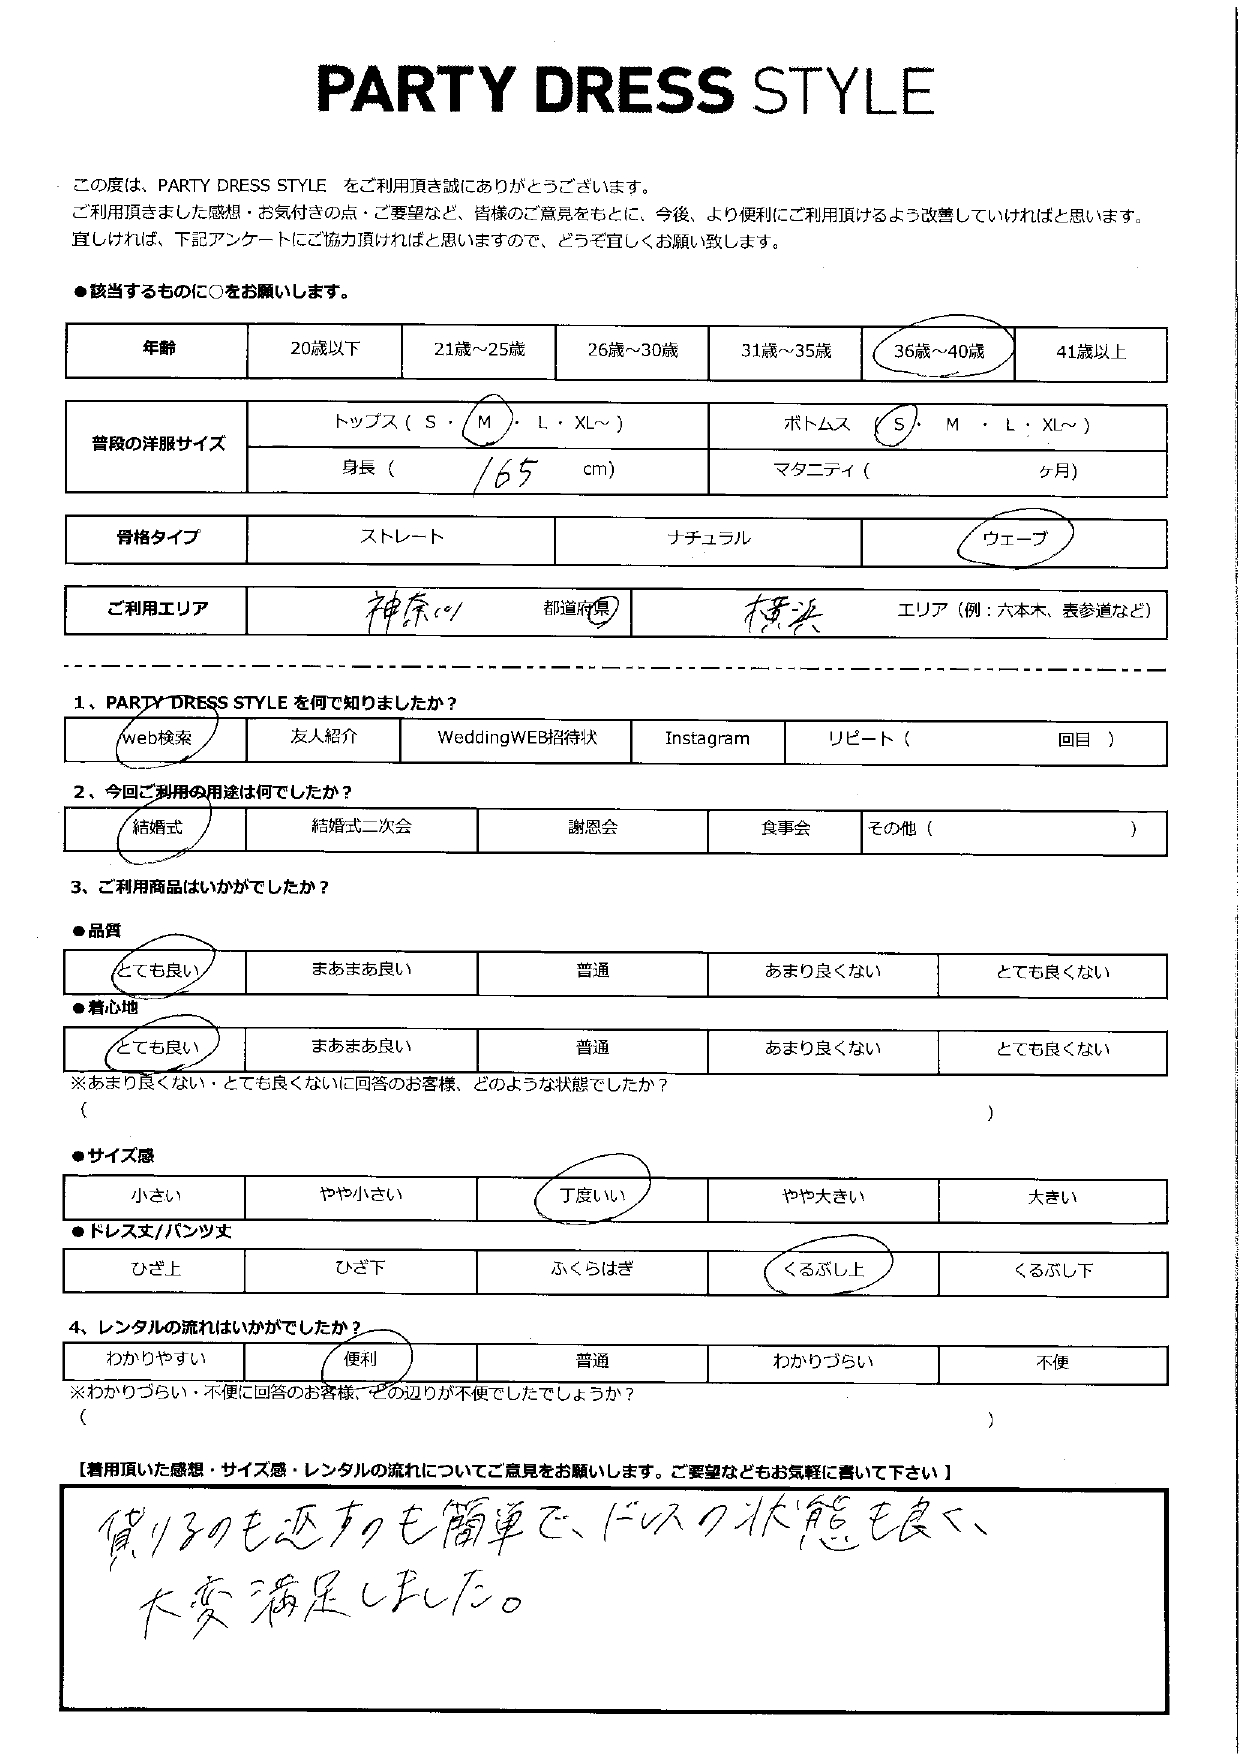 PARTY DRESS STYLE
この度は、PARTY DRESS STYLE をご利用頂き誠にありがとうございます。
ご利用頂きました感想・お気付きの点・ご要望など、皆様のご意見をもとに、今後、より便利にご利用頂けるよう改善していければと思います。
宜しければ、下記アンケートにご協力頂ければと思いますので、どうぞ宜しくお願い致します。
●該当するものに○をお願いします。
年齢 20歳以下 21歳～25歳 26歳～30歳 31歳～35歳 36歳～40歳 41歳以上
普段の洋服サイズ
トップス ( S ・ M ・ L ・ XL～ ) ボトムス ( S ・ M ・ L ・ XL～ )
身長 ( 165 cm) マタニティ ( ヶ月)
骨格タイプ ストレート ナチュラル ウェーブ
ご利用エリア 神奈川 都道府県 横浜 エリア（例：六本木、表参道など）
1、PARTY DRESS STYLE を何で知りましたか？
web検索 友人紹介 WeddingWEB招待状 Instagram リピート ( 回目 )
2、今回ご利用の用途は何でしたか？
結婚式 結婚式二次会 謝恩会 食事会 その他 ( )
3、ご利用商品はいかがでしたか？
●品質
とても良い まあまあ良い 普通 あまり良くない とても良くない
●着心地
とても良い まあまあ良い 普通 あまり良くない とても良くない
※あまり良くない・とても良くないに回答のお客様、どのような状態でしたか？
( )
●サイズ感
小さい やや小さい 丁度いい やや大きい 大きい
●ドレス丈/パンツ丈
ひざ上 ひざ下 ふくらはぎ くるぶし上 くるぶし下
4、レンタルの流れはいかがでしたか？
わかりやすい 便利 普通 わかりづらい 不便
※わかりづらい・不便に回答のお客様、どの辺りが不便でしたでしょうか？
( )
【着用頂いた感想・サイズ感・レンタルの流れについてご意見をお願いします。ご要望などもお気軽に書いて下さい 】
借りるのも返すのも簡単で、ドレスの状態も良く、
大変満足しました。